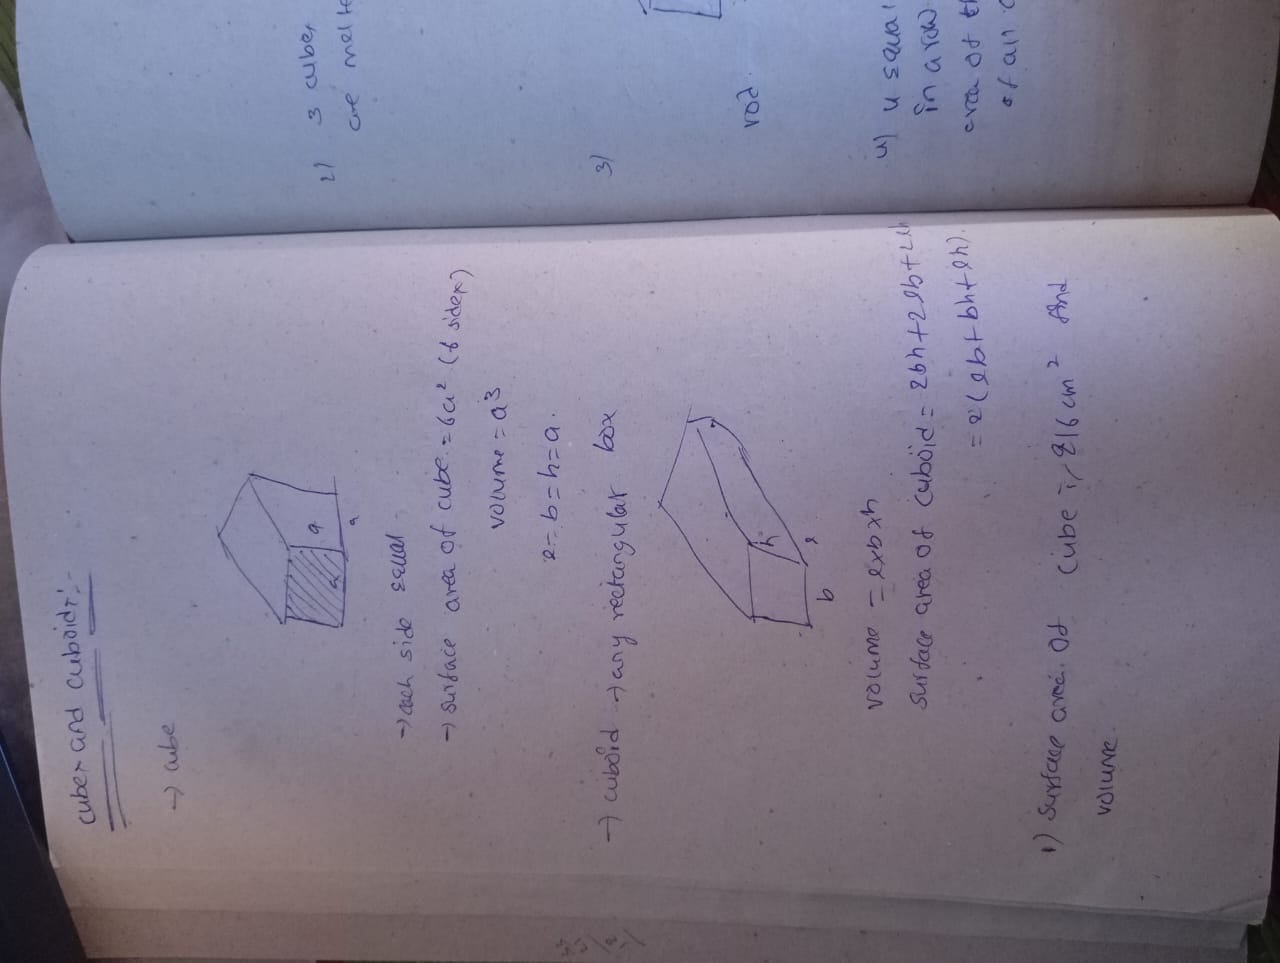 cubes and cuboids:-
→ cube
a
a
a
→ each side equal
→ surface area of cube = 6a² (6 sides)
volume = a³
l = b = h = a.
→ cuboid → any rectangular box
h
b
l
volume = l×b×h
surface area of cuboid = 2bh+2lb+2lh
= 2(lb+bh+lh).
1) Surface area of cube is 216 cm² find
volume.
2) 3 cubes
are melte
3)
rod.
4) 4 equal
in a row
area of th
of all c